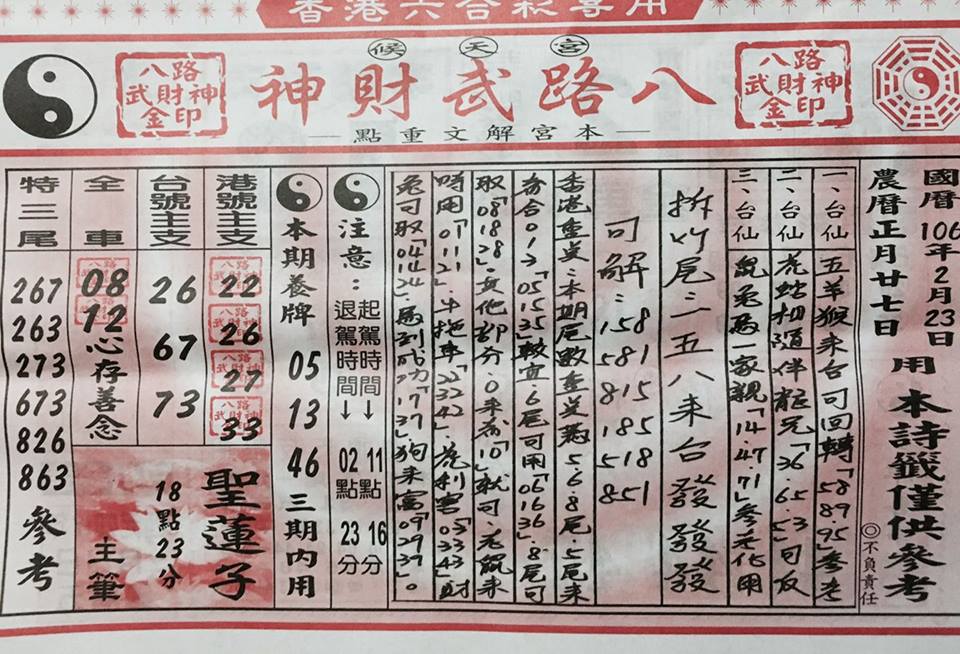 香港六合彩專用
候天宮
八路武財神
八路
武財神
金印
八路
武財神
金印
本宮解文重點
國曆106年2月23日
農曆正月廿七日
用本詩籤僅供參考
◎不負責任
一、台仙
五羊猴來台可回轉「58.89.95」參考
二、台仙
虎蛇相隨伴龍先「36.6.5.3」可反
三、台仙
龜為一家親「14.47.71」參考化用
拆竹尾二五八來台發發發
可解：158
581
815
185
518
851
香港重點：本期尾數重點為5.6.8尾5尾來
夯合013「051535」較立.6尾可用「061636」.8尾可
取「081828」.文他部分.0來為「10」就可.元
時用「011121」.牛拖車「223242」.花利害「053343」財
兔可取「041424」.馬到成功「171737」狗來富「092939」。
注意：
起駕時間↓11點16分
退駕時間↓02點23分
本期養牌
05
13
46
三期內用
港號主支
22
26
27
33
台號主支
26
67
73
聖蓮子
18點23分
主筆
全車
08
12
心存善念
特三尾
267
263
273
673
826
863
參考